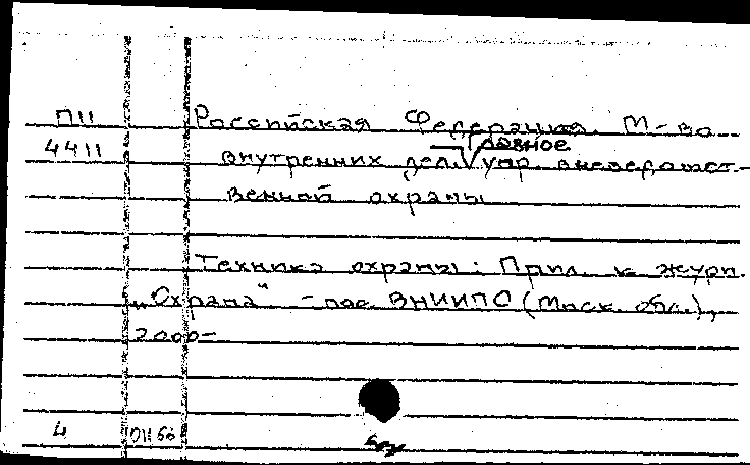 П11
4411
Российская Федерация. М-во
внутренних дел. Главное упр. вневедомст-
венной охраны
Техника охраны: Прил. к журн.
„Охрана" - пос. ВНИИПО (Моск. обл.),
2000-
4